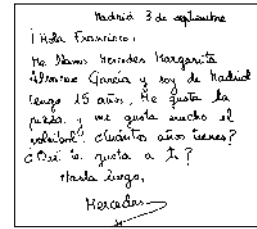 Madrid 3 de septiembre
¡Hola Francisco!
Me llamo Mercedes Margarita
García y soy de Madrid
tengo 15 años, Me gusta la
pizza y me gusta mucho el
voleibol. ¿Cuántos años tienes?
¿Qué te gusta a ti?
Hasta luego,
Mercedes